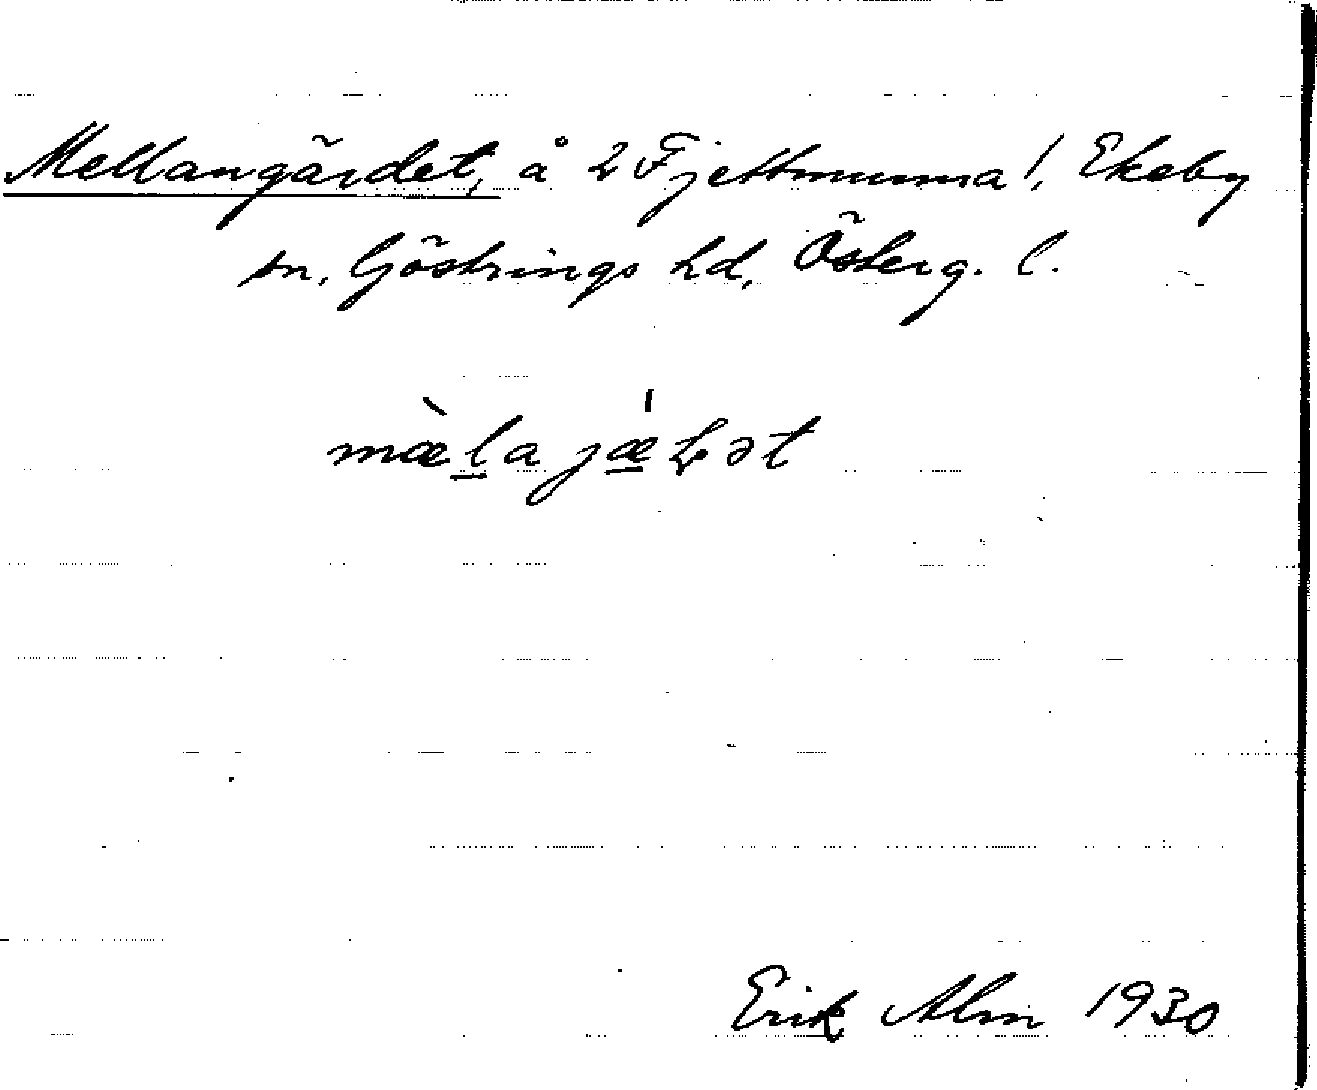 Mellangärdet, å 2 Fjettmunna!, Ekeby
sn, Göstrings hd, Österg. l.
Erik Alm 1930